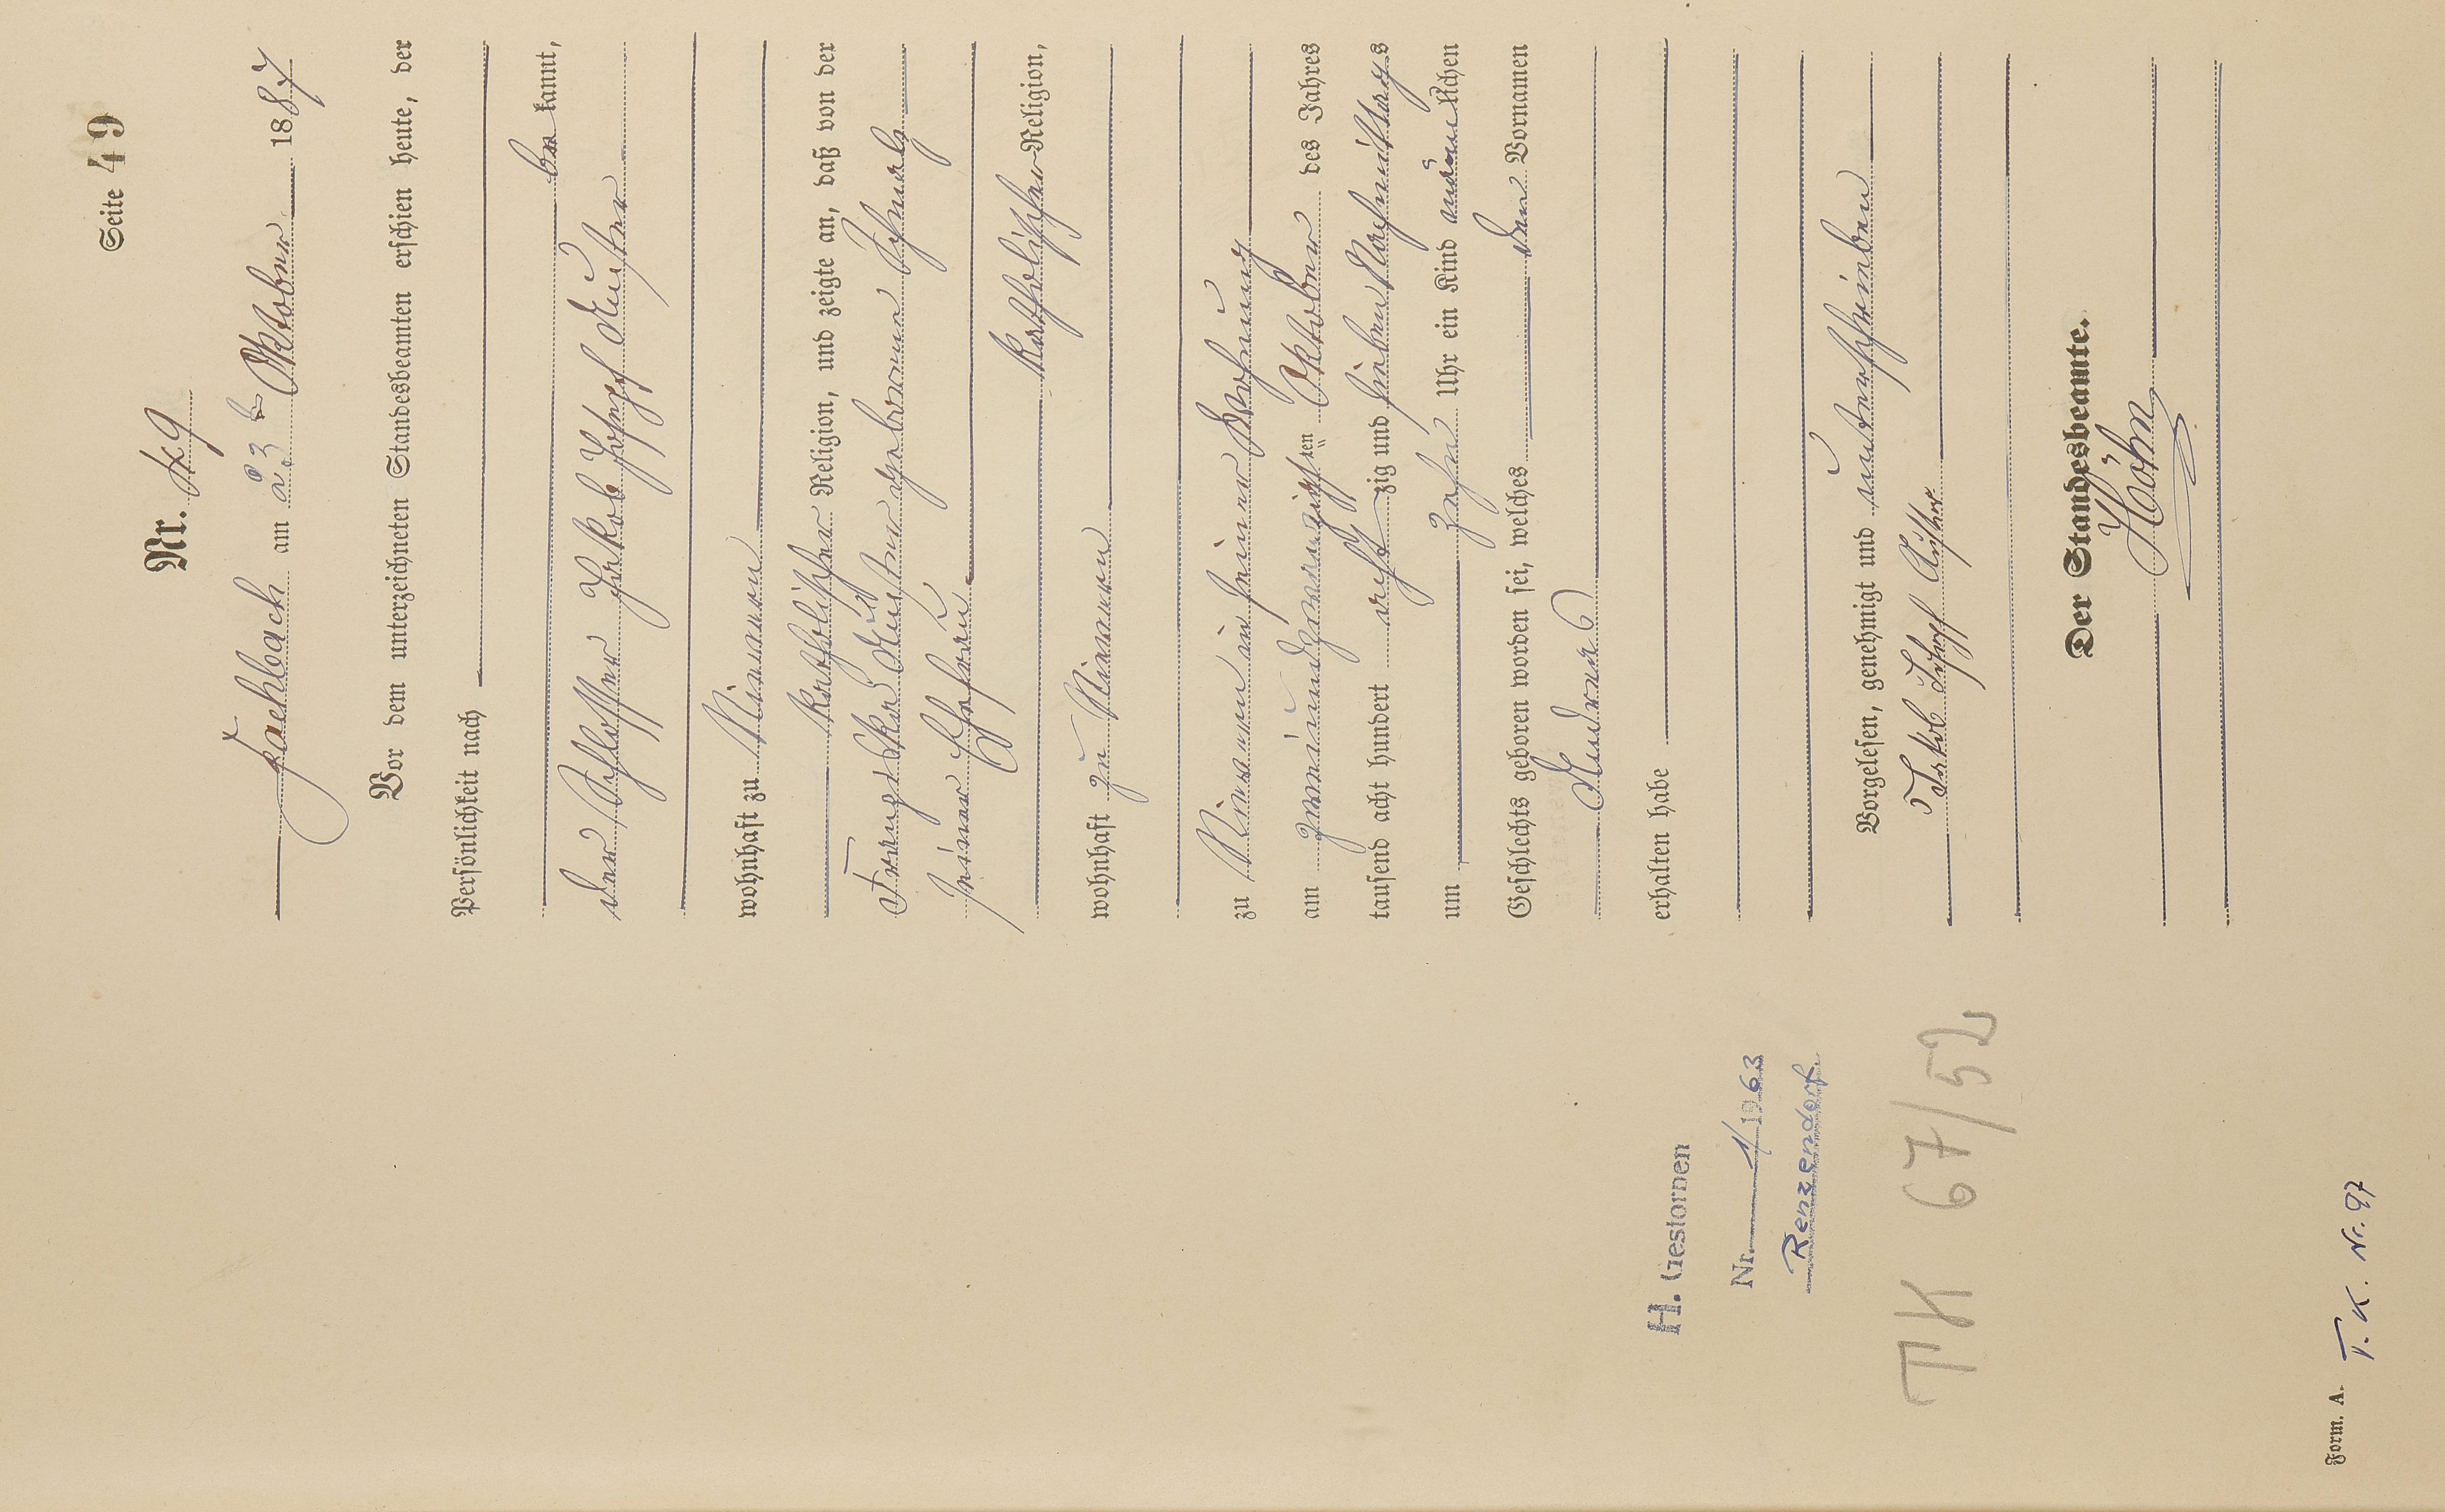 Seite 49
Nr. 49
Fachbach am 23 ten Oktober 1887
Vor dem unterzeichneten Standesbeamten erschien heute, der
Persönlichkeit nach
be kannt,
der Schlosser Jakob Joseph
wohnhaft zu Nievern
katholischer Religion, und zeigte an, daß von der
Franziska geborene
seiner Ehefrau
katholischer Religion,
wohnhaft zu Nievern
zu Nievern in seiner Wohnung
am zweiundzwanzigsten Oktober des Jahres
tausend acht hundert achtzig und sieben Nachmittags
um zehn Uhr ein Kind männlichen
Geschlechts geboren worden sei, welches den Vornamen
Andreas
erhalten habe
Vorgelesen, genehmigt und unterschrieben
Jakob Joseph
Der Standesbeamte.
Höhn
H. Gestorben
Nr. 1/1963
Renzendorf
TK 67/52
Form. A. T. K. Nr. 97